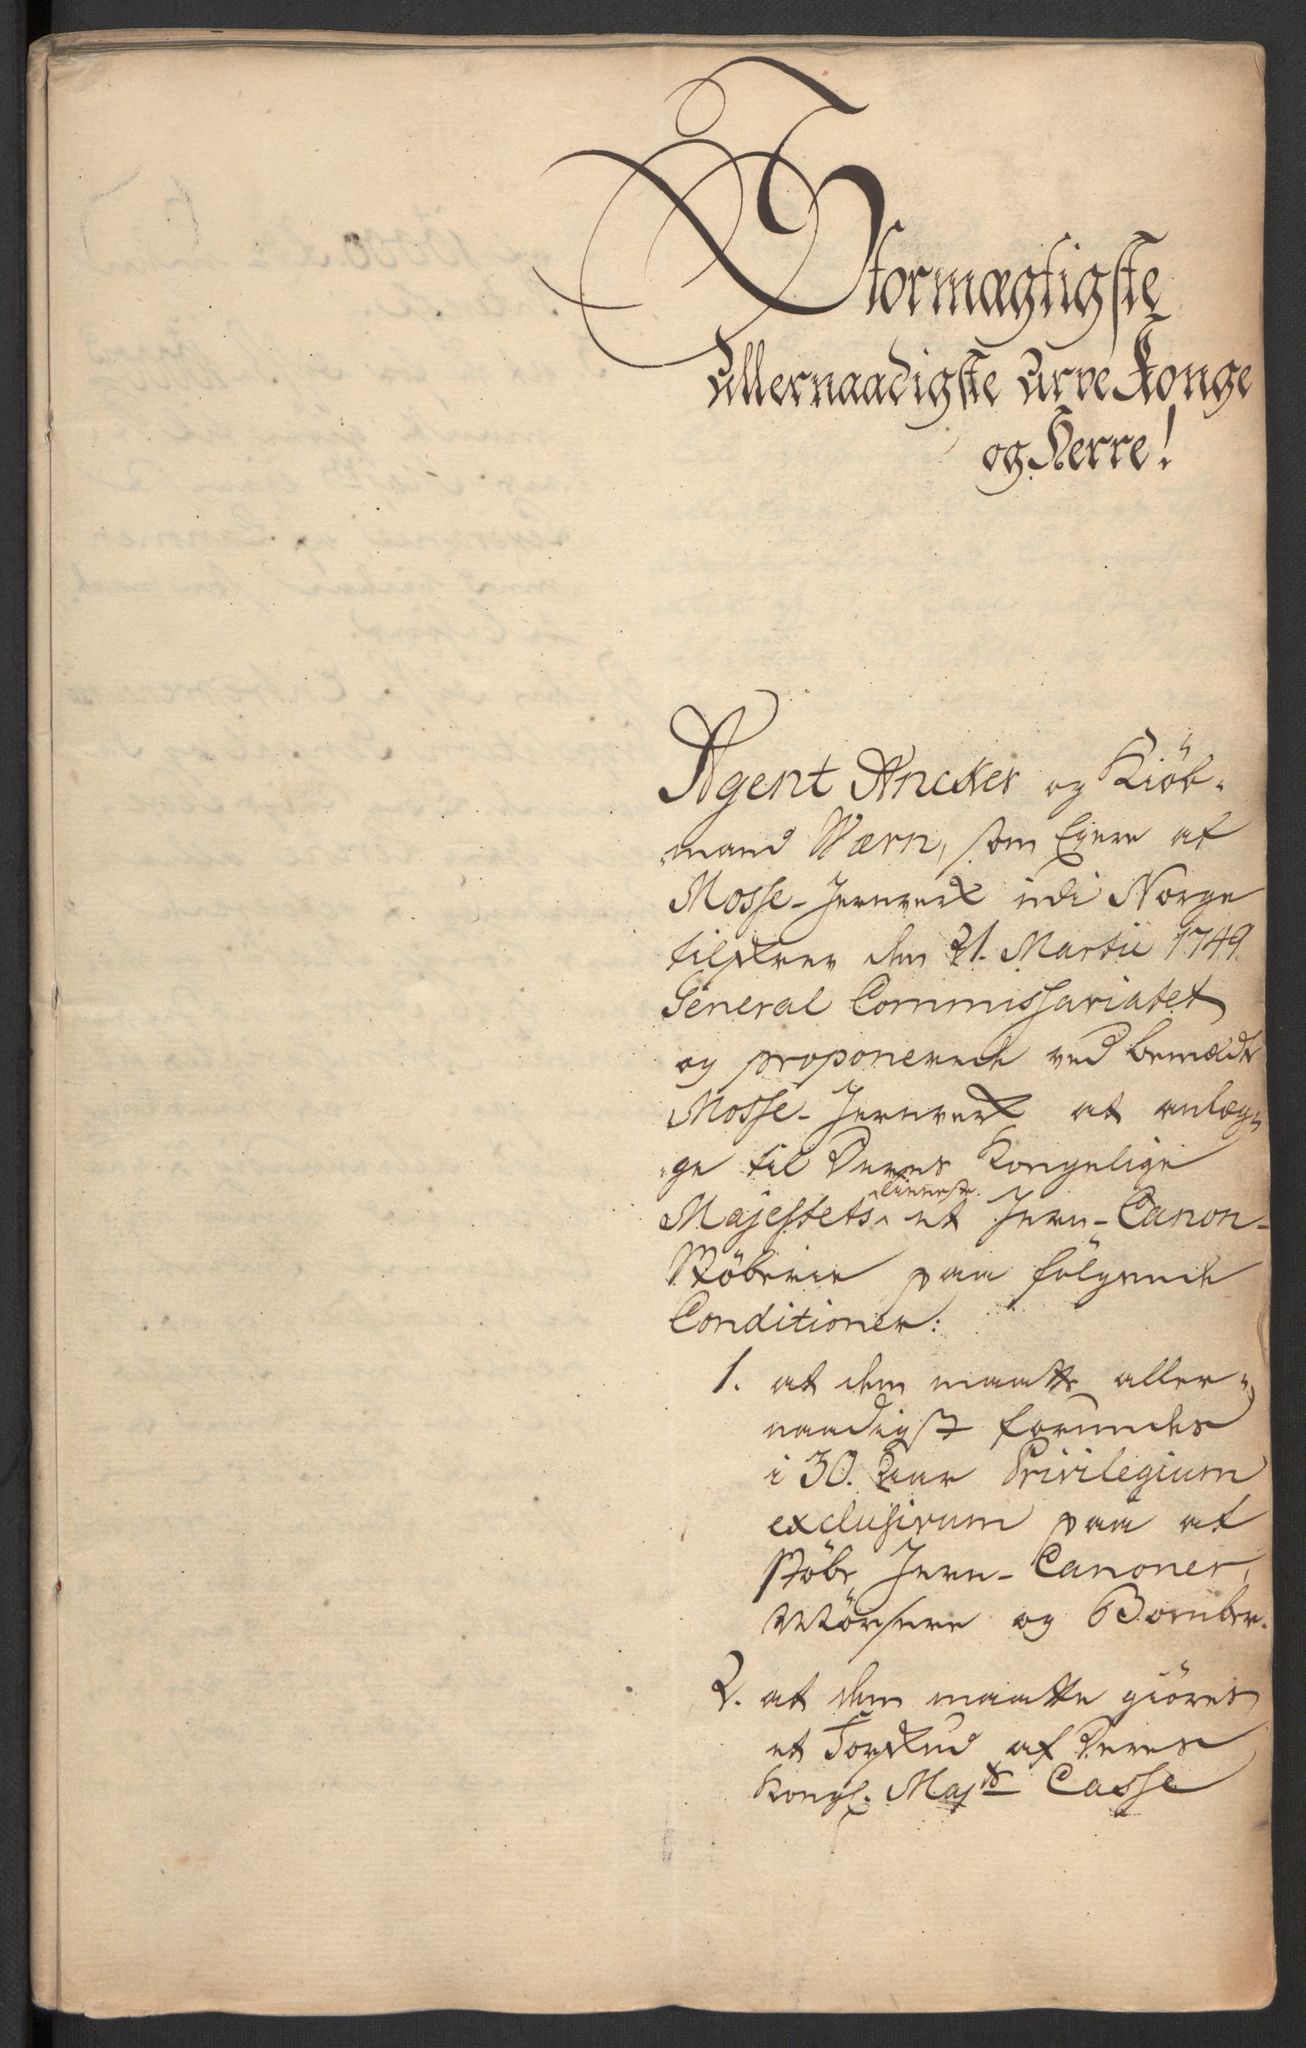 Stormægtigste
Allernaadigste Arve Konge
og Herre!
Agent Ancker og Kiöb-
mand Wærn, som Eÿere af
Mosse-Jernverk udi Norge
tilskrev den 21. Martii 1749.
General Commissariatet
og proponerede ved bemældte
Mosse-Jernverk at anlæg-
ge til Deres Kongelige
Majestets tieneste et Jern-Canon-
Støberie paa følgende
Conditioner:
1. at dem maatte aller-
naadigst forundes
i 30. Aar Privilegium
exclusivum paa at
støbe Jern-Canoner,
Mörsere og Bomber.
2. at dem maatte giöres
et Forskud af Deres
Kongl. Majts Casse